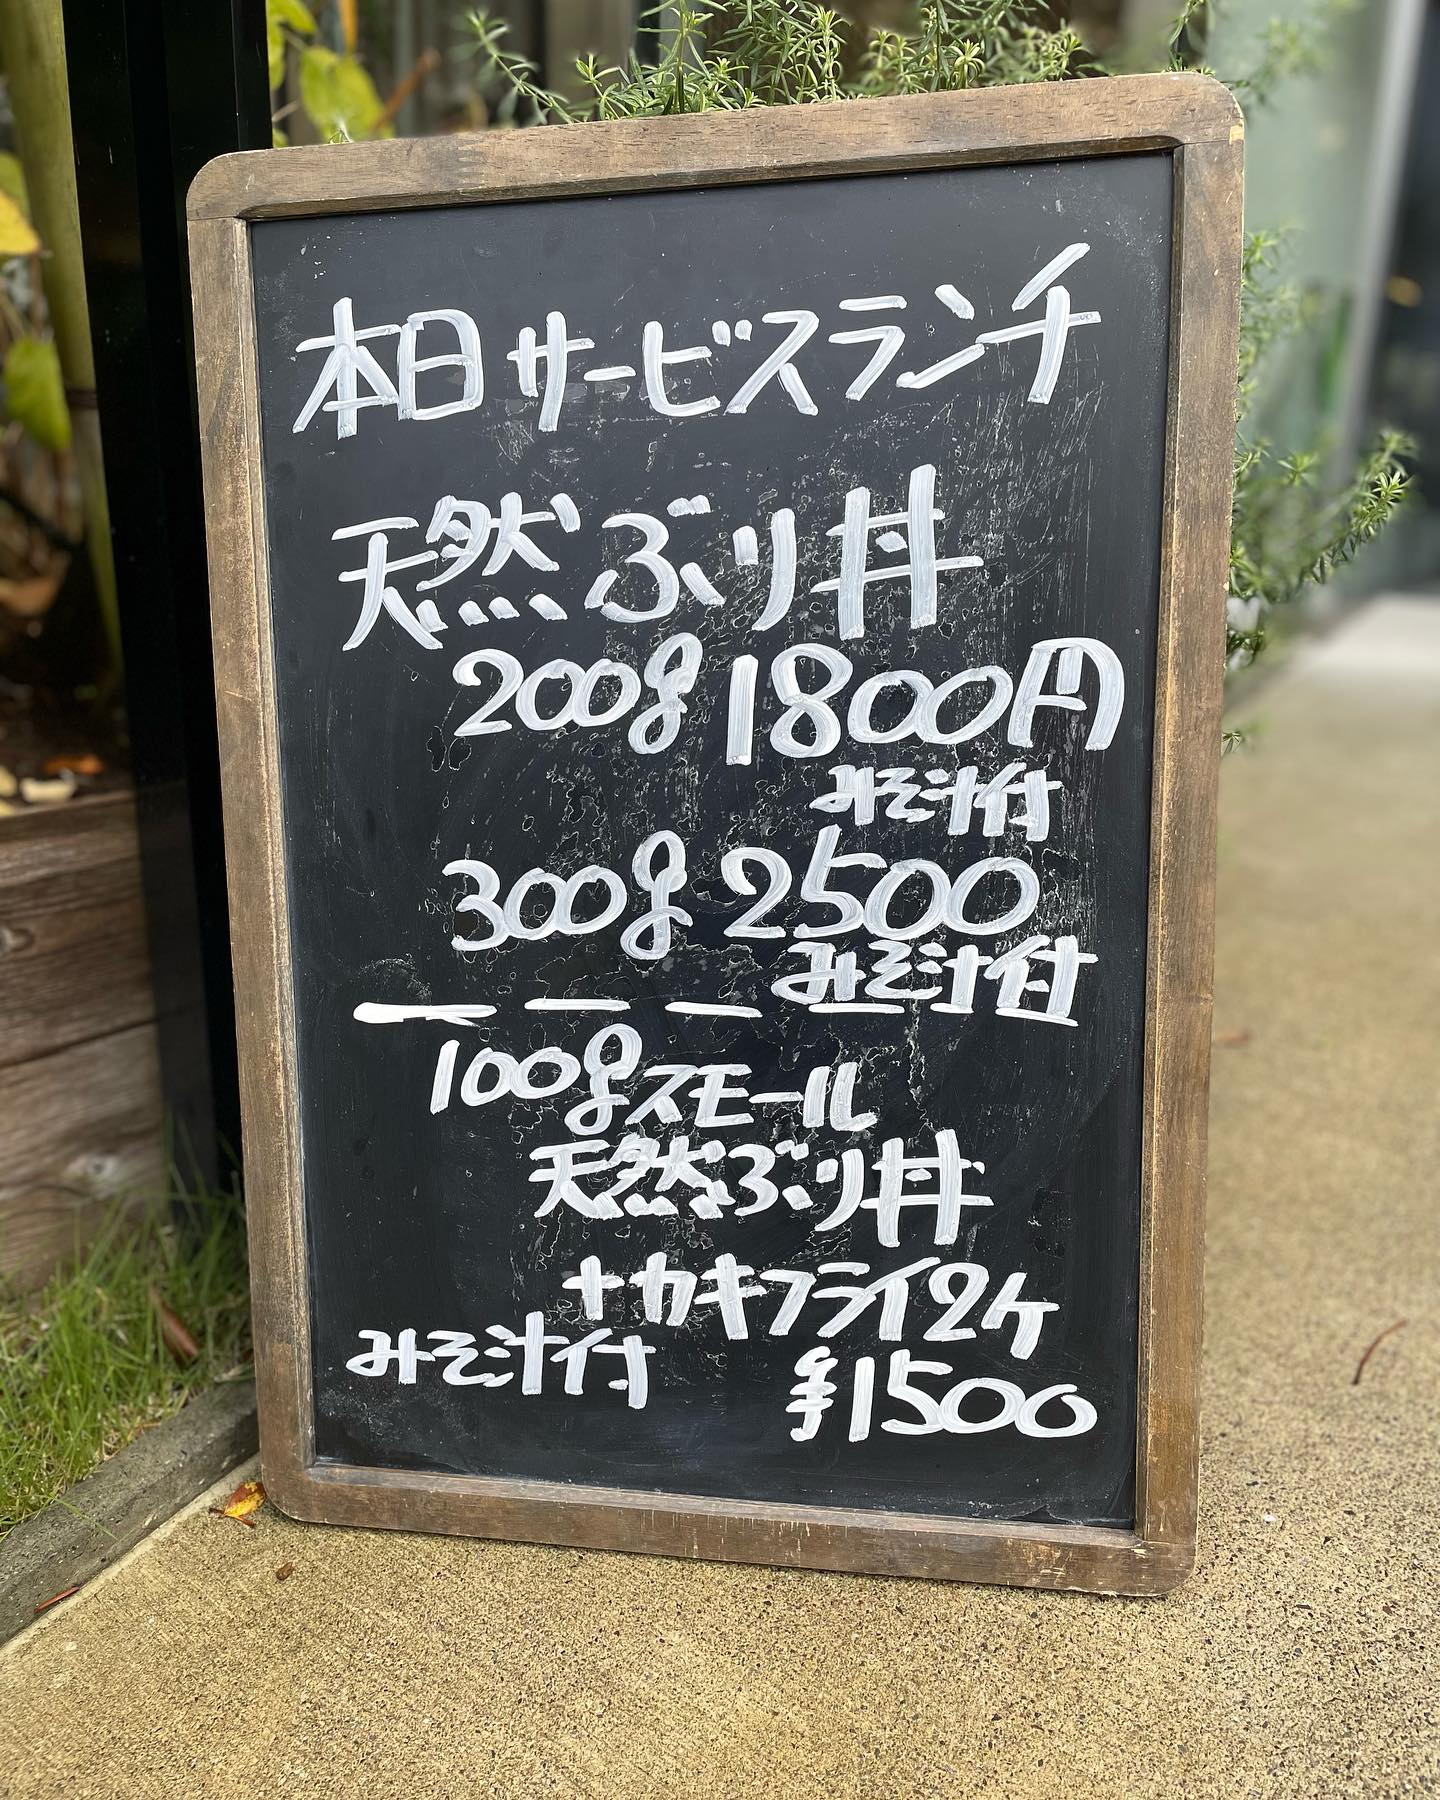 本日サービスランチ
天然ぶり丼
200g 1800円
みそ汁付
300g 2500
みそ汁付
100gスモール
天然ぶり丼
+カキフライ2ケ
みそ汁付 ¥1500